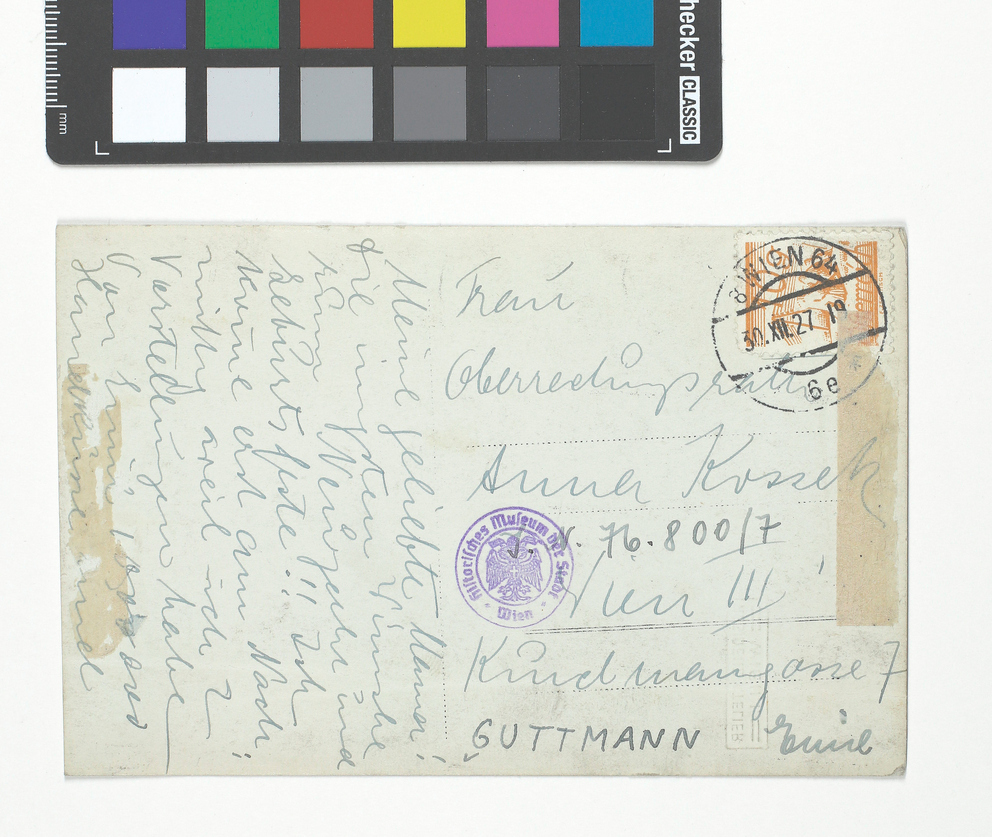 checker CLASSIC
mm
Meine geliebte Mama!
die innigsten Wünsche
zum Neujahr und
Geburtsfeste!! Ich
komme erst am Nach-
mittag weil ich 2
Vorstellungen habe
von
Frau
Oberrechnungsrätin
Anna Kossek
J. N. 76.800/7
Wien III
Kundmanngasse 7
GUTTMANN
Emil
8 WIEN 64
30.XII.27 19
* 6e
Historisches Museum der Stadt
Wien